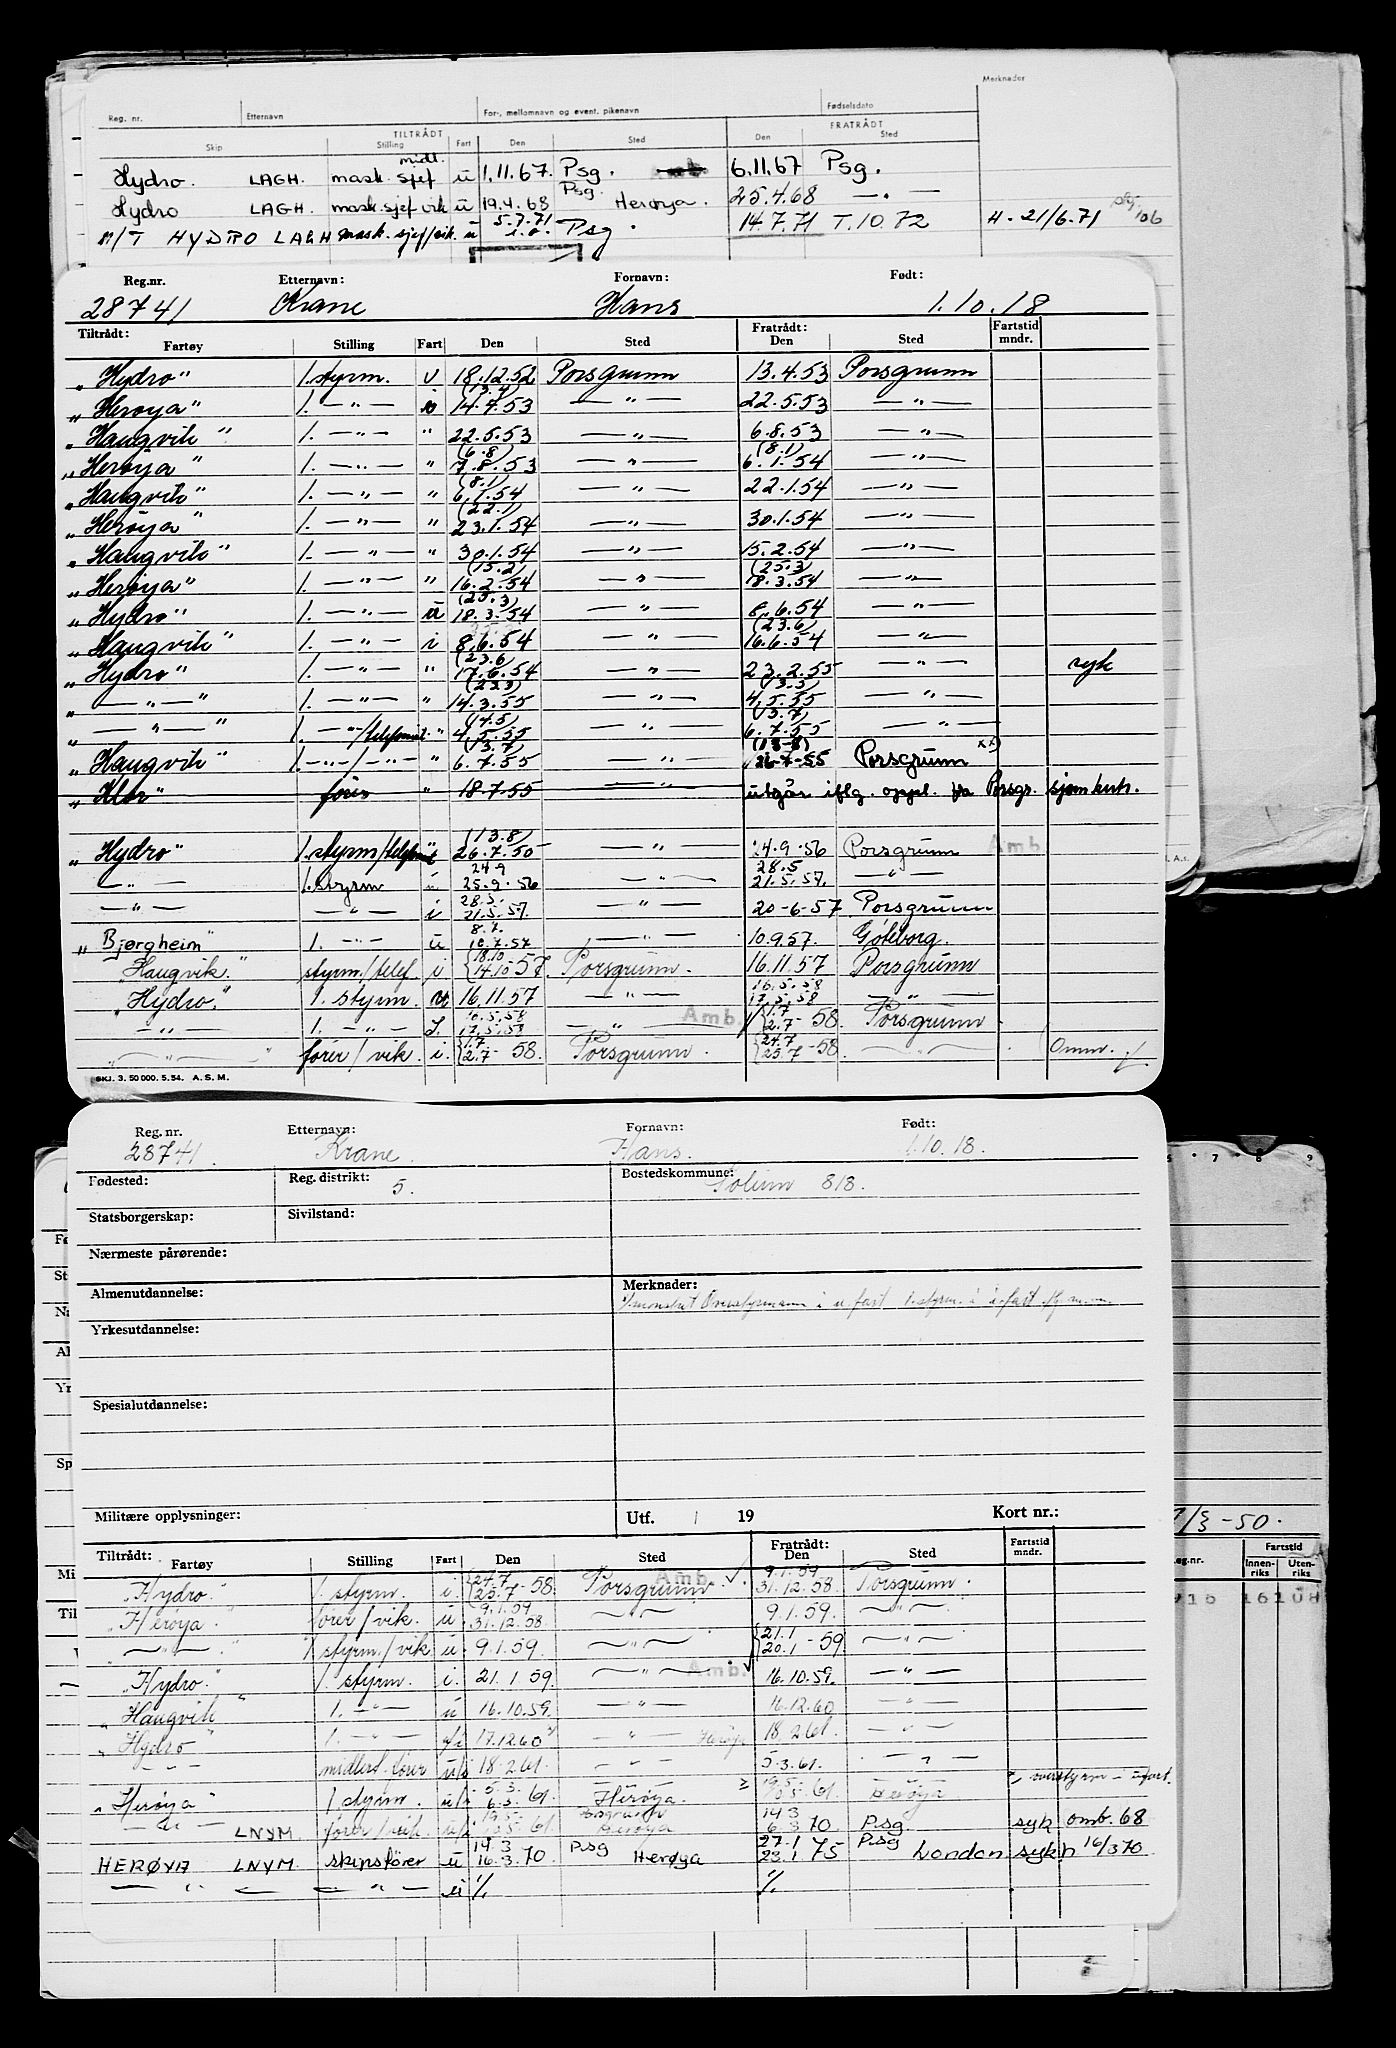 Merknader
Reg. nr. Etternavn For-, mellomnavn og event. pikenavn Fødselsdato
TILTRÅDT FRATRÅDT
Skip Stilling Fart Den Sted Den Sted
Hydro. LAGH. mask. sjef midl. ü 1.11.67. Psg. 6.11.67 Psg.
Hydro LAGH. mask. sjef vik ü 19.4.68 Psg. Herøya. 25.4.68 — " —
M/T HYDRO LAGH mask. sjef/vik. u 5.7.71 i.o. Psg. 14.7.71 T.10.72 H. 21/6.71
Reg.nr. Etternavn: Fornavn: Født:
28741 Krane Hans 1.10.18
Tiltrådt: Fratrådt: Fartstid
Fartøy Stilling Fart Den Sted Den Sted mndr.
„Hydro" 1. styrm. u 18.12.52 Porsgrunn 13.4.53 Porsgrunn
„Herøya" 1. — " — (13.4) 14.4.53 — " — 22.5.53 — " —
„Haugvik" 1. — " — " 22.5.53 — " — 6.8.53 — " —
„Herøya" 1. — " — " (6.8) 7.8.53 — " — (8.1) 6.1.54 — " —
„Haugvik" 1. — " — " (8.1) 6.1.54 — " — 22.1.54 — " —
„Herøya" 1. — " — " (22.1) 23.1.54 — " — 30.1.54 — " —
„Haugvik" 1. — " — " 30.1.54 — " — 15.2.54 — " —
„Herøya" 1. — " — " (15.2) 16.2.54 — " — (25.3) 18.3.54 — " —
„Hydro" 1. — " — ü (25.3) 18.3.54 — " — 8.6.54 — " —
„Haugvik" 1. — " — i 8.6.54 — " — (23.6) 16.6.54 — " —
„Hydro" 1. — " — " (23.6) 17.6.54 — " — 23.2.55 — " — syk
„ — " — " 1. — " — " (23.3) 14.3.55 — " — (13.5) 4.5.55 — " —
„ — " — " 1. — " —/telefonist " (14.5) 4.5.55 — " — (13.7) 6.7.55 — " —
„Haugvik" 1. — " —/— " — " (13.7) 6.7.55 — " — (13-8) 26-7-55 Porsgrunn xx)
„Klor" fører " 18-7-55 — " — utgår iflg. oppl. fra Porsgr. sjømktr.
„Hydro" 1. styrm/telefonist " (13.8) 26.7.55 — " — 24.9.56 Porsgrunn Amb.
— " — 1. styrm ü 24.9 25.9.56 — " — 28.5 21.5.57. — " —
— " — — " — i 28.5. 21.5.57. — " — 20-6-57 Porsgrunn
„Bjørgheim" 1. — " — ü 8.7. 10.7.57 — " — 10.9.57. Göteborg.
„Haugvik." styrm./telef i 18.10 14.10 57. Porsgrunn. 16.11.57 Porsgrunn
„Hydro." 1. styrm. u 16.11.57 — " — 16.5.58 17.5.58 — " —
— " — 1. — " — I. 16.5.58 17.5.58 — " — Amb. 1.7 2.7-58. Porsgrunn
— " — fører/vik. i. 1.7 2.7-58. Porsgrunn. 24.7 25.7-58. — " — Omm.
SKJ. 3. 50 000. 5. 54. A. S. M.
Reg.nr. Etternavn: Fornavn: Født:
28741. Krane. Hans. 1.10.18.
Fødested: Reg. distrikt: 5. Bostedskommune: Solum 818.
Statsborgerskap: Sivilstand:
Nærmeste pårørende:
Almenutdannelse: Merknader:
Overstyrmann i u.fart 1. styrm. i i-fart
Yrkesutdannelse:
Spesialutdannelse:
Militære opplysninger: Utf. / 19 Kort nr.:
7/3-50.
Tiltrådt: Fratrådt: Fartstid
Fartøy Stilling Fart Den Sted Den Sted mndr.
Fartstid
Innen-riks Uten-riks
„Hydro." 1. styrm. i. 24.7 25.7-58. Porsgrunn. Amb. 9.1.59 31.12.58. Porsgrunn.
„Herøya." fører/vik. u. 9.1.59 31.12.58. — " — 9.1.59. — " —
— " — 1. styrm./vik u. 9.1.59. — " — 21.1 20.1-59. — " —
„Hydro." 1. styrm. i. 21.1.59 — " — Amb. 16.10.59. — " —
„Haugvik" 1. — " — ü 16.10.59. — " — 16.12.60 — " —
„Hydro" 1. — " — 17.12.60 — " — Herøya 18.2.61. — " —
— " — midlert. fører u/i 18.2.61. — " — 5.3.61. — " —
„Herøya" 1 styrm. u/i 5.3. 6.3.61. Herøya. 19.5. 61 Herøya overstyrm i ufart.
— " — LNYM. fører/vik. u/i 19.5. 61. Porsgrunn Herøya 14.3 6.3 70 Psg. syk omb. 68
HERØYA LNYM. skipsfører u 14.3 16.3.70 Psg Herøya 27.1 23.1 75 Psg London sykh 16/3 70
— " — — — " — ü % %